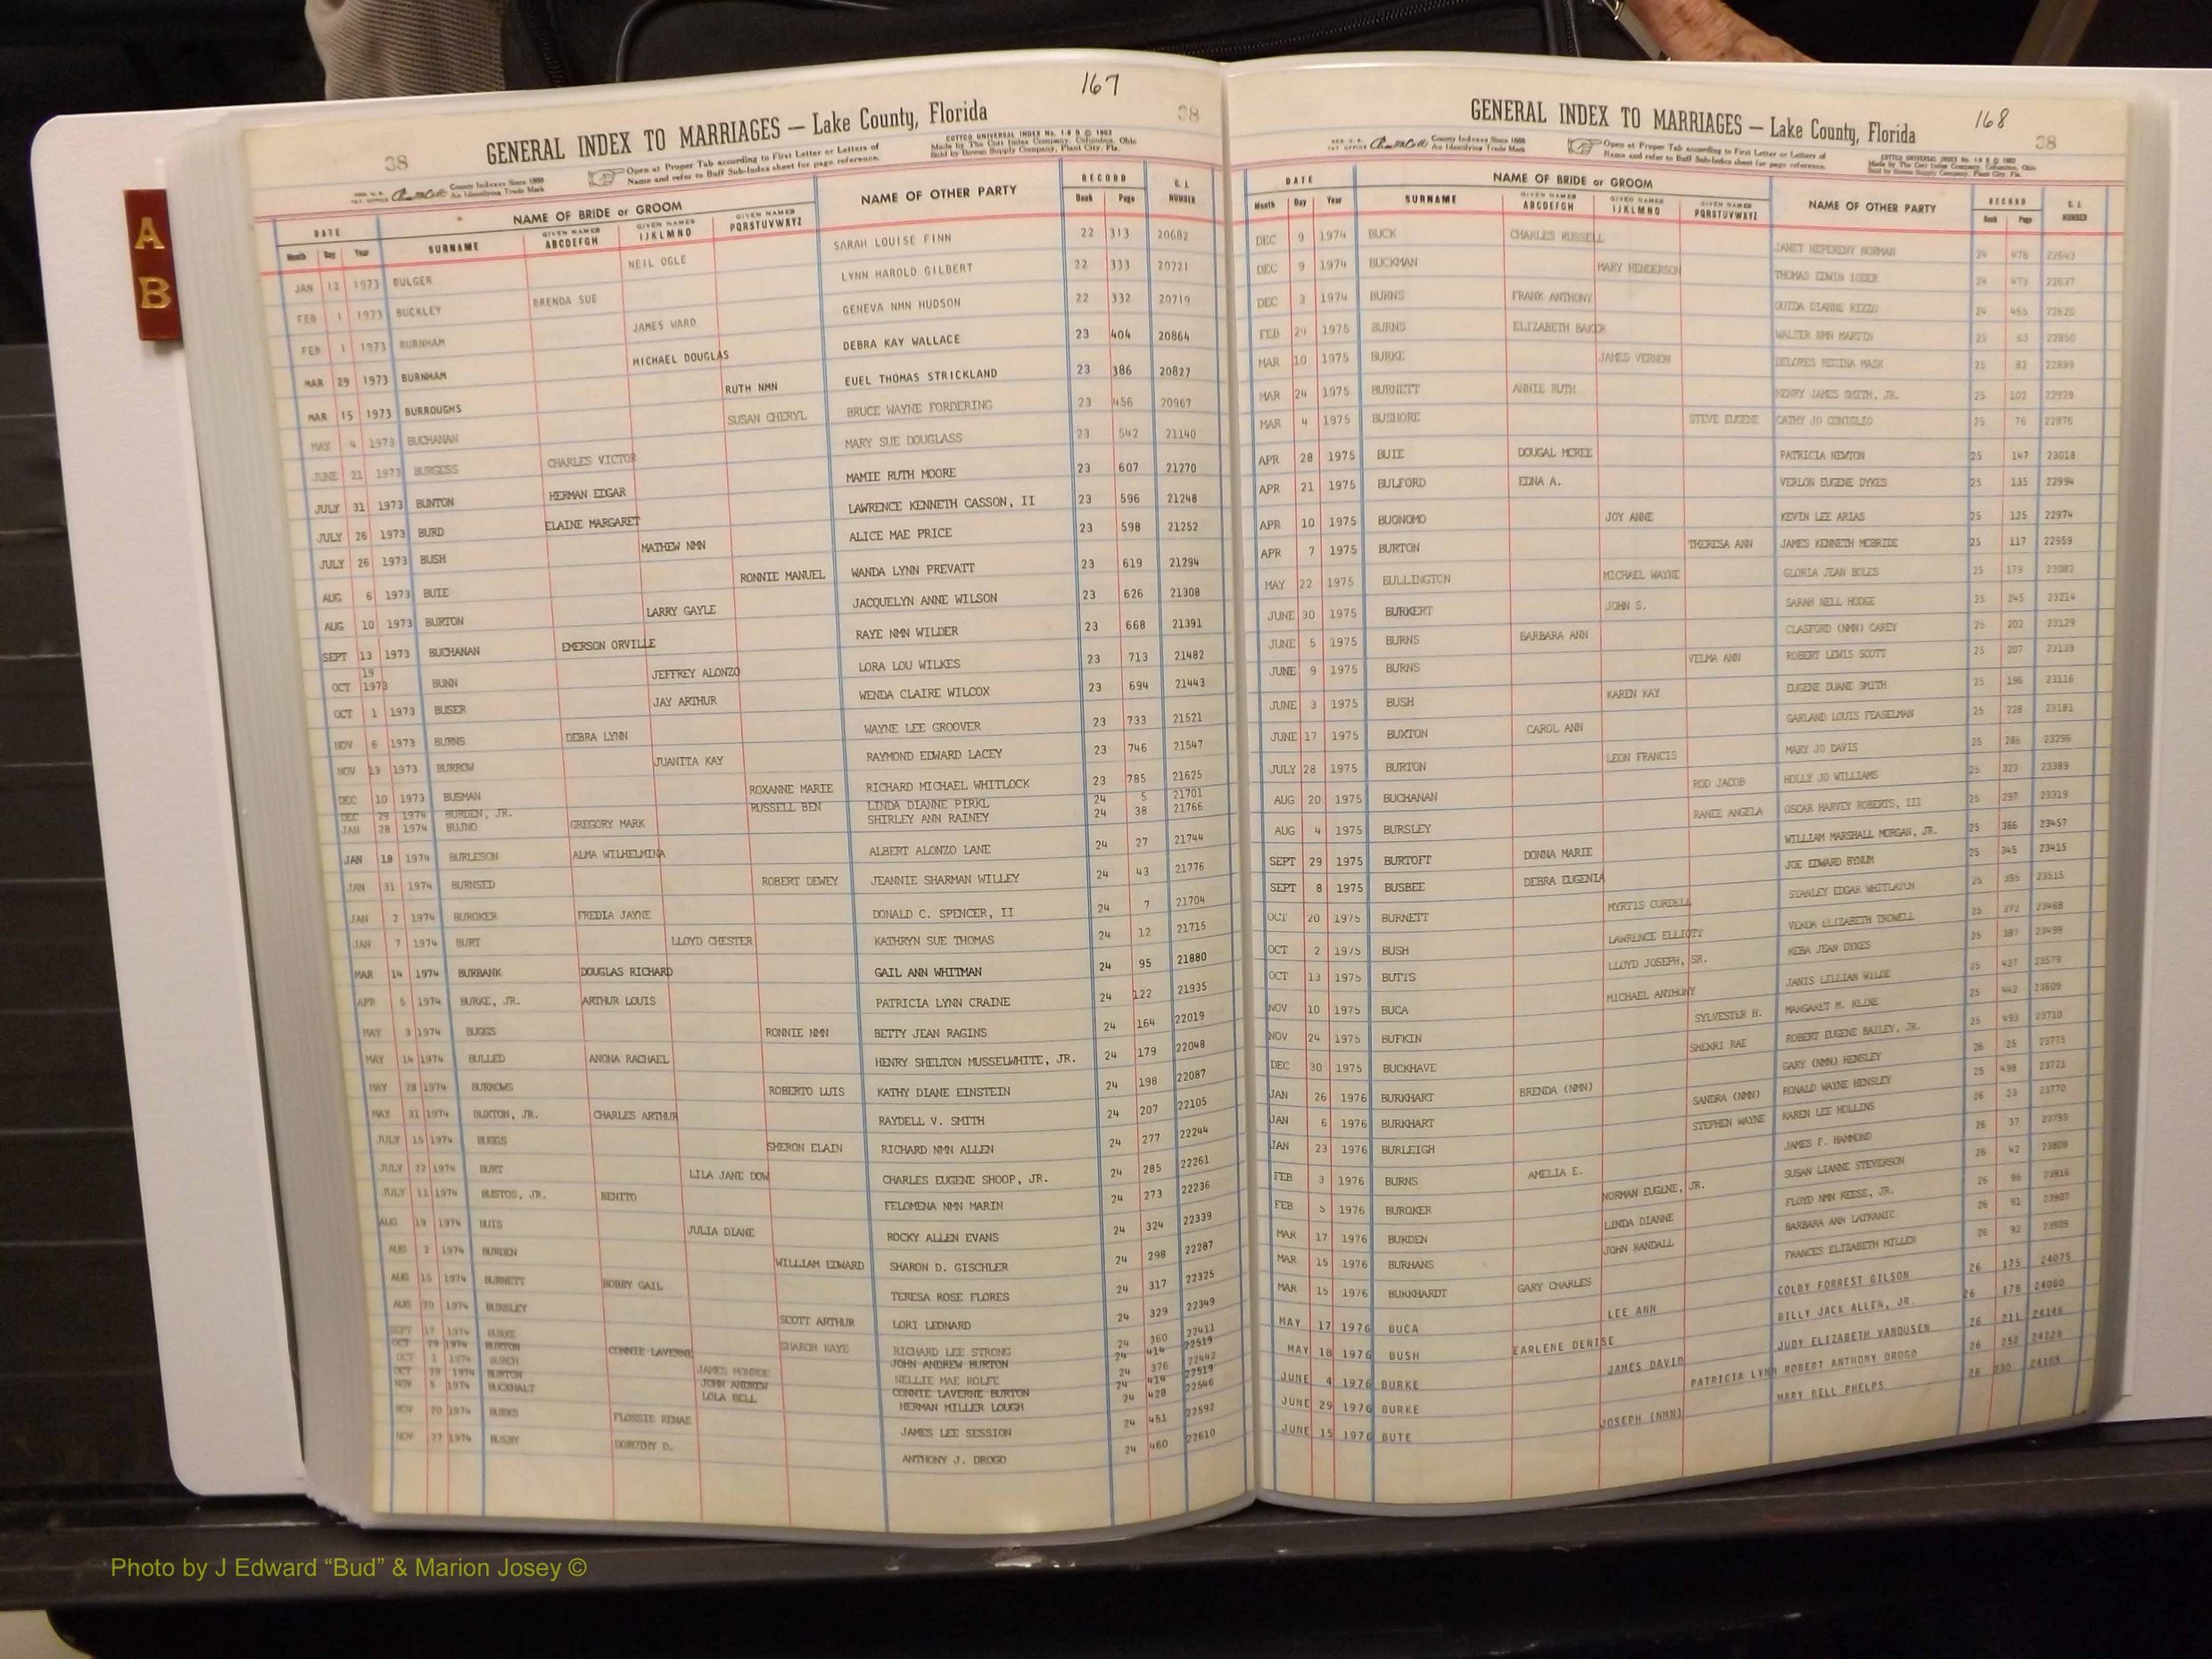 A
B
167
38
38
GENERAL INDEX TO MARRIAGES — Lake County, Florida
County Indexes Since 1888
An Identifying Trade Mark
Open at Proper Tab according to First Letter or Letters of
Name and refer to Buff Sub-Index sheet for page reference.
COTTCO UNIVERSAL INDEX No. 1-8 D © 1962
Made by The Cott Index Company, Columbus, Ohio
Sold by Bowen Supply Company, Plant City, Fla.
DATE NAME OF BRIDE or GROOM NAME OF OTHER PARTY RECORD C. L.
Month Day Year SURNAME GIVEN NAMES ABCDEFGH GIVEN NAMES IJKLMNO GIVEN NAMES PQRSTUVWXYZ Book Page NUMBER
JAN 12 1973 BULGER NEIL OGLE SARAH LOUISE FINN 22 313 20682
FEB 1 1973 BUCKLEY BRENDA SUE LYNN HAROLD GILBERT 22 333 20721
FEB 1 1973 BURNHAM JAMES WARD GENEVA NMN HUDSON 22 332 20719
MAR 29 1973 BURNHAM MICHAEL DOUGLAS DEBRA KAY WALLACE 23 404 20864
MAR 15 1973 BURROUGHS RUTH NMN EUEL THOMAS STRICKLAND 23 386 20827
MAY 4 1973 BUCHANAN SUSAN CHERYL BRUCE WAYNE FORDERING 23 456 20967
JUNE 21 1973 BURGESS CHARLES VICTOR MARY SUE DOUGLASS 23 542 21140
JULY 31 1973 BUNTON HERMAN EDGAR MAMIE RUTH MOORE 23 607 21270
JULY 26 1973 BURD ELAINE MARGARET LAWRENCE KENNETH CASSON, II 23 596 21248
JULY 26 1973 BUSH MATHEW NMN ALICE MAE PRICE 23 598 21252
AUG 6 1973 BUIE RONNIE MANUEL WANDA LYNN PREVATT 23 619 21294
AUG 10 1973 BURTON LARRY GAYLE JACQUELYN ANNE WILSON 23 626 21308
SEPT 13 1973 BUCHANAN EMERSON ORVILLE RAYE NMN WILDER 23 668 21391
OCT 19 1973 BUNN JEFFREY ALONZO LORA LOU WILKES 23 713 21482
OCT 1 1973 BUSER JAY ARTHUR WENDA CLAIRE WILCOX 23 694 21443
NOV 6 1973 BURNS DEBRA LYNN WAYNE LEE GROOVER 23 733 21521
NOV 13 1973 BURROW JUANITA KAY RAYMOND EDWARD LACEY 23 746 21547
DEC 10 1973 BUSMAN ROXANNE MARIE RICHARD MICHAEL WHITLOCK 23 785 21625
DEC 29 1974 BURDEN, JR. RUSSELL BEN LINDA DIANNE PIRKL 24 5 21701
JAN 28 1974 BUJNO GREGORY MARK SHIRLEY ANN RAINEY 24 38 21766
JAN 18 1974 BURLESON ALMA WILHELMINA ALBERT ALONZO LANE 24 27 21744
JAN 31 1974 BURNSED ROBERT DEWEY JEANNIE SHARMAN WILLEY 24 43 21776
JAN 2 1974 BUROKER FREDIA JAYNE DONALD C. SPENCER, II 24 7 21704
JAN 7 1974 BURT LLOYD CHESTER KATHRYN SUE THOMAS 24 12 21715
MAR 14 1974 BURBANK DOUGLAS RICHARD GAIL ANN WHITMAN 24 95 21880
APR 5 1974 BURKE, JR. ARTHUR LOUIS PATRICIA LYNN CRAINE 24 122 21935
MAY 3 1974 BUGGS RONNIE NMN BETTY JEAN RAGINS 24 164 22019
MAY 14 1974 BULLED ANONA RACHAEL HENRY SHELTON MUSSELWHITE, JR. 24 179 22048
MAY 28 1974 BURROWS ROBERTO LUIS KATHY DIANE EINSTEIN 24 198 22087
MAY 31 1974 BUXTON, JR. CHARLES ARTHUR RAYDELL V. SMITH 24 207 22105
JULY 15 1974 BUGGS SHERON ELAIN RICHARD NMN ALLEN 24 277 22244
JULY 22 1974 BURT LILA JANE DOW CHARLES EUGENE SHOOP, JR. 24 285 22261
JULY 11 1974 BUSTOS, JR. BENITO FELOMENA NMN MARIN 24 273 22236
AUG 19 1974 BUIS JULIA DIANE ROCKY ALLEN EVANS 24 324 22339
AUG 2 1974 BURDEN WILLIAM EDWARD SHARON D. GISCHLER 24 298 22287
AUG 15 1974 BURNETT BOBBY GAIL TERESA ROSE FLORES 24 317 22325
AUG 20 1974 BURSLEY SCOTT ARTHUR LORI LEONARD 24 329 22349
SEPT 17 1974 BURKE SHARON KAYE RICHARD LEE STRONG 24 360 22411
OCT 29 1974 BURTON CONNIE LAVERNE JOHN ANDREW BURTON 24 414 22519
OCT 1 1974 BURCH JAMES MONROE NELLIE MAE ROLFE 24 376 22442
OCT 29 1974 BURTON JOHN ANDREW CONNIE LAVERNE BURTON 24 414 22519
NOV 5 1974 BUCKHALT LOLA BELL HERMAN MILLER LOUGH 24 428 22546
NOV 20 1974 BURKS FLOSSIE RENAE JAMES LEE SESSION 24 451 22592
NOV 27 1974 BUSBY DOROTHY D. ANTHONY J. DROGO 24 460 22610
168
38
GENERAL INDEX TO MARRIAGES — Lake County, Florida
County Indexes Since 1888
An Identifying Trade Mark
Open at Proper Tab according to First Letter or Letters of
Name and refer to Buff Sub-Index sheet for page reference.
COTTCO UNIVERSAL INDEX No. 1-8 D © 1962
Made by The Cott Index Company, Columbus, Ohio
Sold by Bowen Supply Company, Plant City, Fla.
DATE NAME OF BRIDE or GROOM NAME OF OTHER PARTY RECORD C. L.
Month Day Year SURNAME GIVEN NAMES ABCDEFGH GIVEN NAMES IJKLMNO GIVEN NAMES PQRSTUVWXYZ Book Page NUMBER
DEC 9 1974 BUCK CHARLES RUSSELL JANET NEPERENY NORMAN 24 476 22643
DEC 9 1974 BUCKMAN MARY HENDERSON THOMAS EDWIN IODER 24 473 22637
DEC 3 1974 BURNS FRANK ANTHONY OUIDA DIANNE RIZZO 24 465 22620
FEB 24 1975 BURNS ELIZABETH BAKER WALTER NMN MARTIN 25 63 22850
MAR 10 1975 BURKE JAMES VERNON DELORES REGINA MASK 25 82 22889
MAR 24 1975 BURNETT ANNIE RUTH HENRY JAMES SMITH, JR. 25 102 22928
MAR 4 1975 BUSHORE STEVE EUGENE CATHY JO CONIGLIO 25 76 22876
APR 28 1975 BUIE DOUGAL MCREE PATRICIA NEWTON 25 147 23018
APR 21 1975 BULFORD EDNA A. VERLON EUGENE DYKES 25 135 22994
APR 10 1975 BUONOMO JOY ANNE KEVIN LEE ARIAS 25 125 22974
APR 7 1975 BURTON THERESA ANN JAMES KENNETH MCBRIDE 25 117 22959
MAY 22 1975 BULLINGTON MICHAEL WAYNE GLORIA JEAN BOLES 25 179 23082
JUNE 30 1975 BURKERT JOHN S. SARAH NELL HODGE 25 245 23214
JUNE 5 1975 BURNS BARBARA ANN CLASFORD (NMN) CAREY 25 202 23129
JUNE 9 1975 BURNS VELMA ANN ROBERT LEWIS SCOTT 25 207 23139
JUNE 3 1975 BUSH KAREN KAY EUGENE DUANE SMITH 25 196 23116
JUNE 17 1975 BUXTON CAROL ANN GARLAND LOUIS FEASELMAN 25 228 23181
JULY 28 1975 BURTON LEON FRANCIS MARY JO DAVIS 25 286 23296
AUG 20 1975 BUCHANAN ROD JACOB HOLLY JO WILLIAMS 25 323 23369
AUG 4 1975 BURSLEY RANEE ANGELA OSCAR HARVEY ROBERTS, III 25 297 23319
SEPT 29 1975 BURTOFT DONNA MARIE WILLIAM MARSHALL MORGAN, JR. 25 366 23457
SEPT 8 1975 BUSBEE DEBRA EUGENIA JOE EDWARD BYNUM 25 345 23415
OCT 20 1975 BURNETT MYRTIS CORDELL STANLEY EDGAR WHITLATCH 25 395 23515
OCT 2 1975 BUSH LAWRENCE ELLIOTT ELIZABETH TROWELL 25 372 23468
OCT 13 1975 BUTTS LLOYD JOSEPH, SR. REBA JEAN DYKES 25 387 23499
NOV 10 1975 BUCA MICHAEL ANTHONY JANIS LILLIAN WILDE 25 427 23579
NOV 24 1975 BUFKIN SYLVESTER H. MARGARET M. KLINE 25 442 23609
DEC 30 1975 BUCKHAVE SHERRI RAE ROBERT EUGENE BAILEY, JR. 25 493 23710
JAN 26 1976 BURKHART BRENDA (NMN) GARY (NMN) HENSLEY 26 25 23775
JAN 6 1976 BURKHART SANDRA (NMN) RONALD WAYNE HENSLEY 25 498 23721
JAN 23 1976 BURLEIGH STEPHEN WAYNE KAREN LEE HOLLINS 26 23 23770
FEB 3 1976 BURNS AMELIA E. JAMES F. HAMMOND 26 37
FEB 5 1976 BUROKER NORMAN EUGENE, JR. SUSAN LIANNE STEVERSON 26 42 23808
MAR 17 1976 BURDEN LINDA DIANNE FLOYD NMN REESE, JR. 26 96 23916
MAR 15 1976 BURHANS JOHN RANDALL BARBARA ANN 26 91 23907
MAR 15 1976 BURKHARDT GARY CHARLES FRANCES ELIZABETH MILLER 26 92 23909
MAY 17 1976 BUCA LEE ANN COLBY FORREST GILSON 26 175 24075
MAY 18 1976 BUSH EARLENE DENISE BILLY JACK ALLEN, JR. 26 178 24080
JUNE 4 1976 BURKE JAMES DAVID JUDY ELIZABETH VANDUSEN 26 211 24146
JUNE 29 1976 BURKE PATRICIA LYNN ROBERT ANTHONY DROGO 26 252 24228
JUNE 15 1976 BUTE JOSEPH (NMN) MARY BELL PHELPS 26 230
Photo by J Edward “Bud” & Marion Josey ©